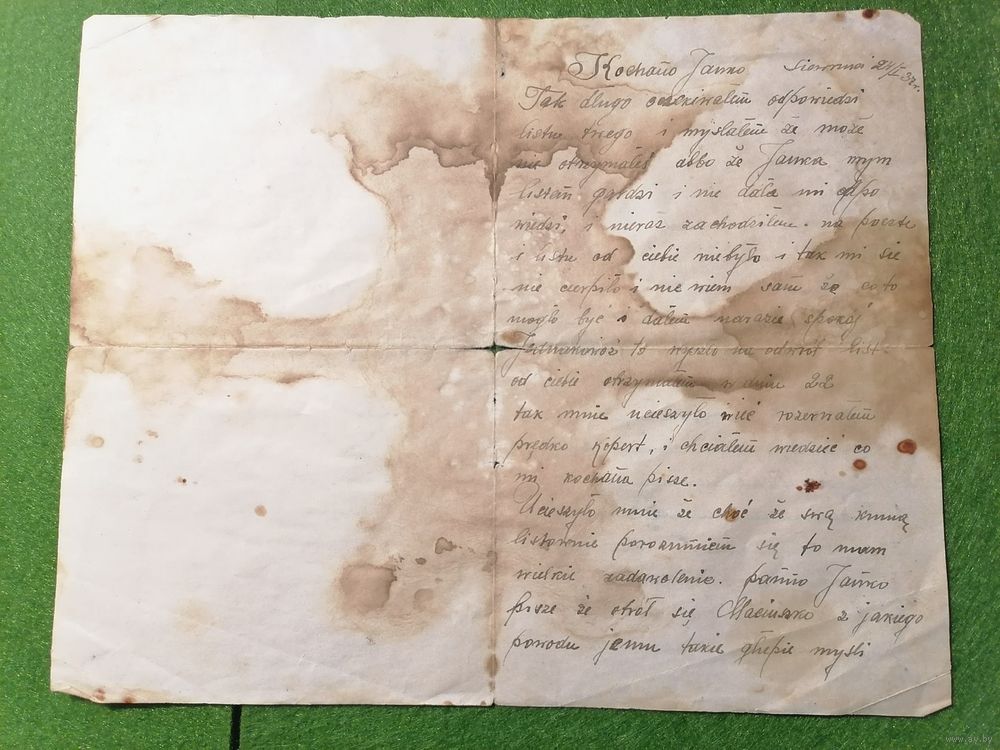 Kochano Janko 24/I 37r.
Tak długo oczekiwałem odpowiedzi
listu twego i myślałem że może
nie otrzymałeś albo że Janka mym
listem gardzi i nie dała mi odpo
wiedzi, i nieraz zachodziłem na poczte
i listu od ciebie niebyło i tak mi sie
nie cierpiło i nie wiem sam że co to
mogło być i dałem narazie spokój
to wyszło na odwrót list
od ciebie otrzymałem w dniu 22
tak mnie ucieszyło więc rozerwałem
prędko kopert, i chciałem wiedzieć co
mi kochana pisze.
Ucieszyło mnie że choć że swą
listownie porozumiem się to mam
wielkie zadawolenie. panno Janko
pisze że otrół się Maciuszko z jakiego
powodu jemu takie głupie myśli
www.ay.by